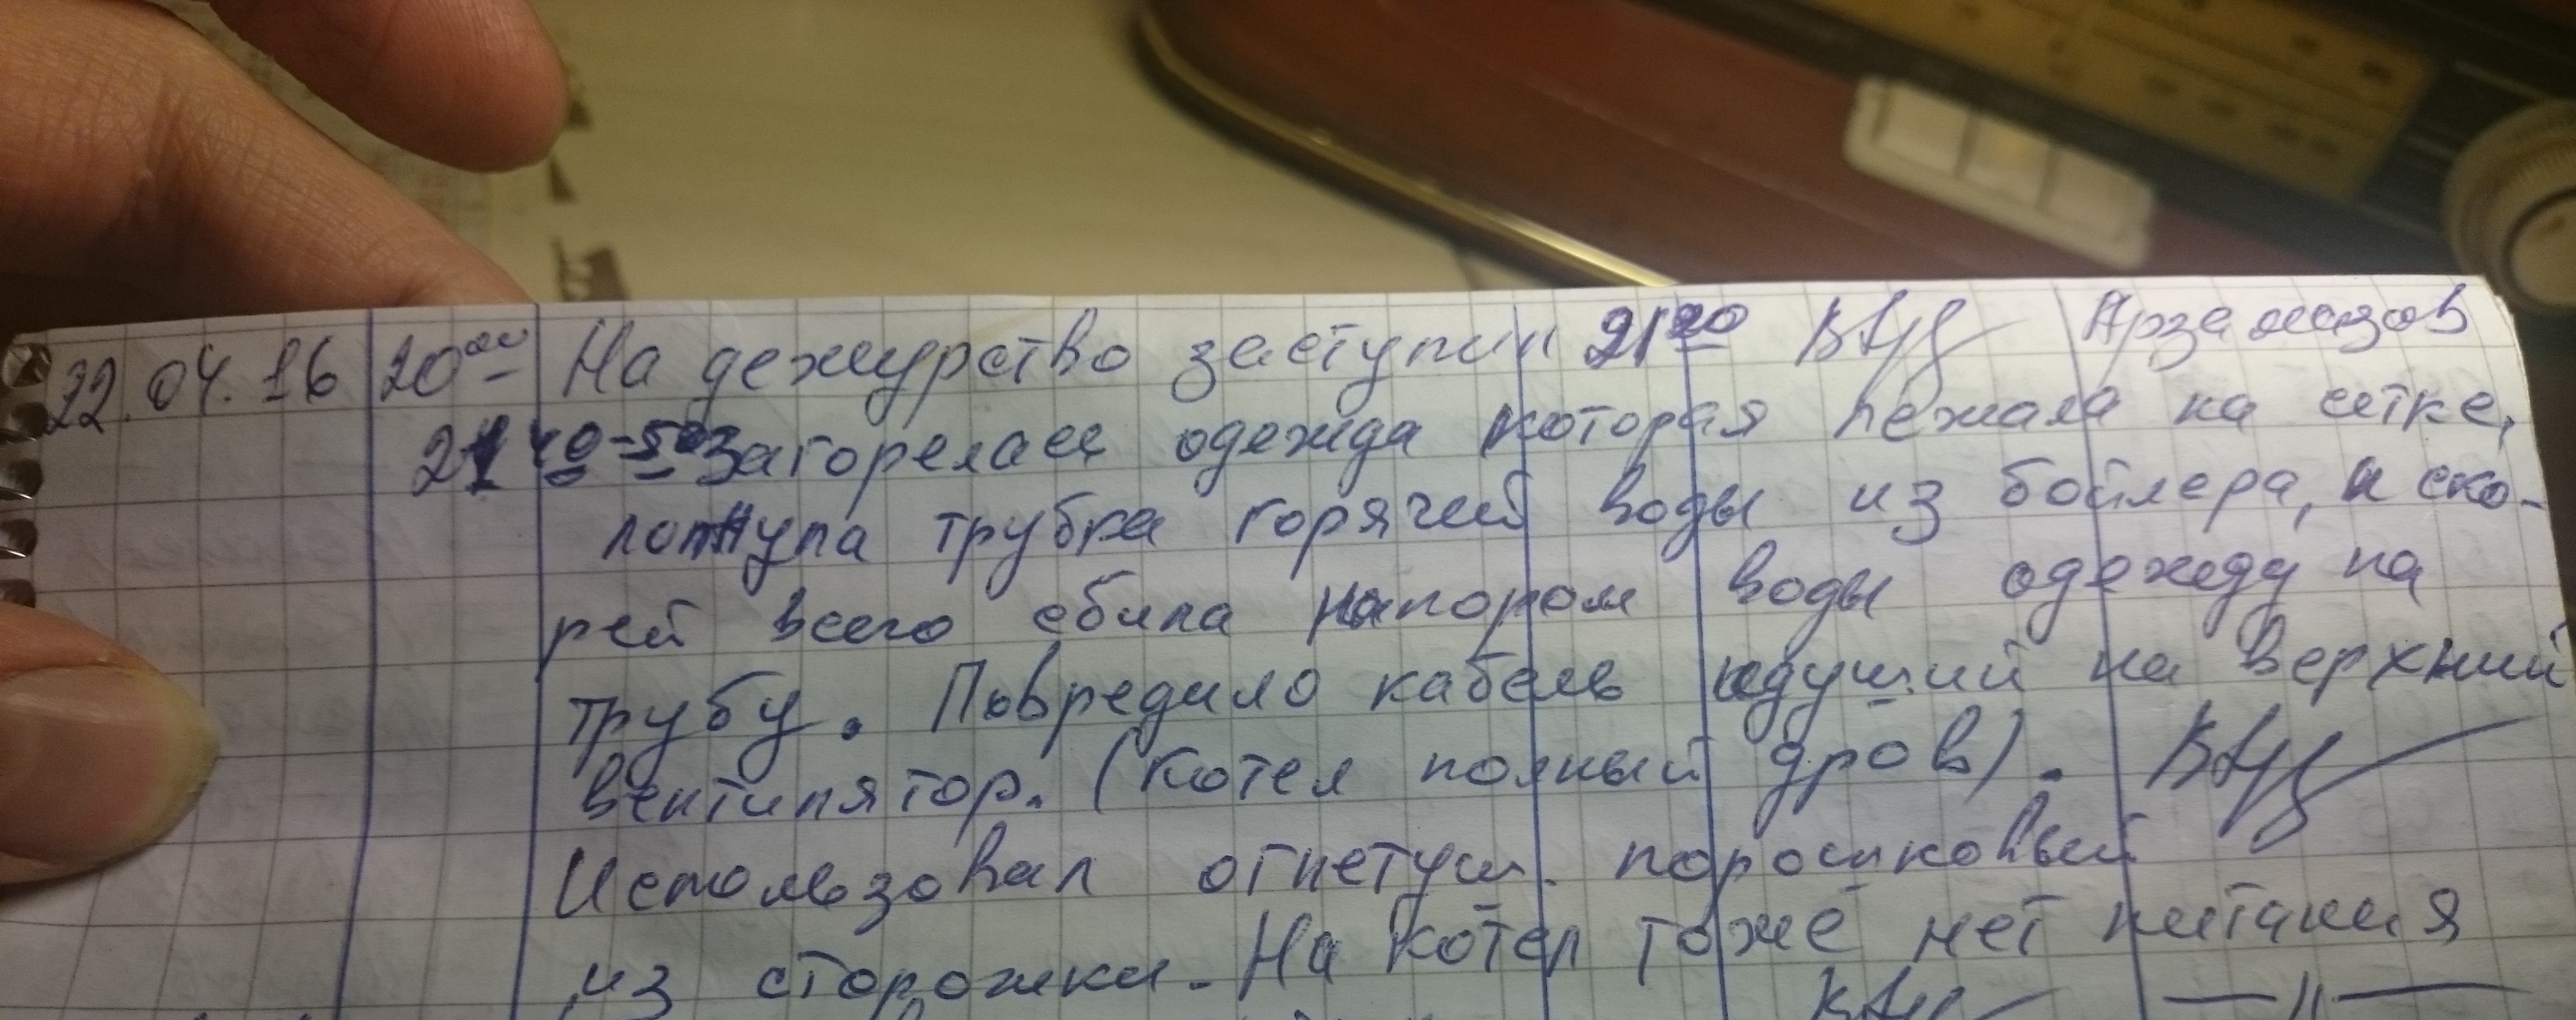 22.04.16 20⁰⁰ На дежурство заступил 21²⁰ Арзамазов
21⁴⁰⁻⁵⁰ Загорелась одежда которая лежала на сетке,
лопнула трубка горячей воды из бойлера, и ско-
рей всего сбила напором воды одежду на
трубу. Повредило кабель идущий на верхний
вентилятор. (Котел полный дров).
Использовал огнетуш. порошковый
из сторожки. На котел тоже нет питания
—— 〃 ——